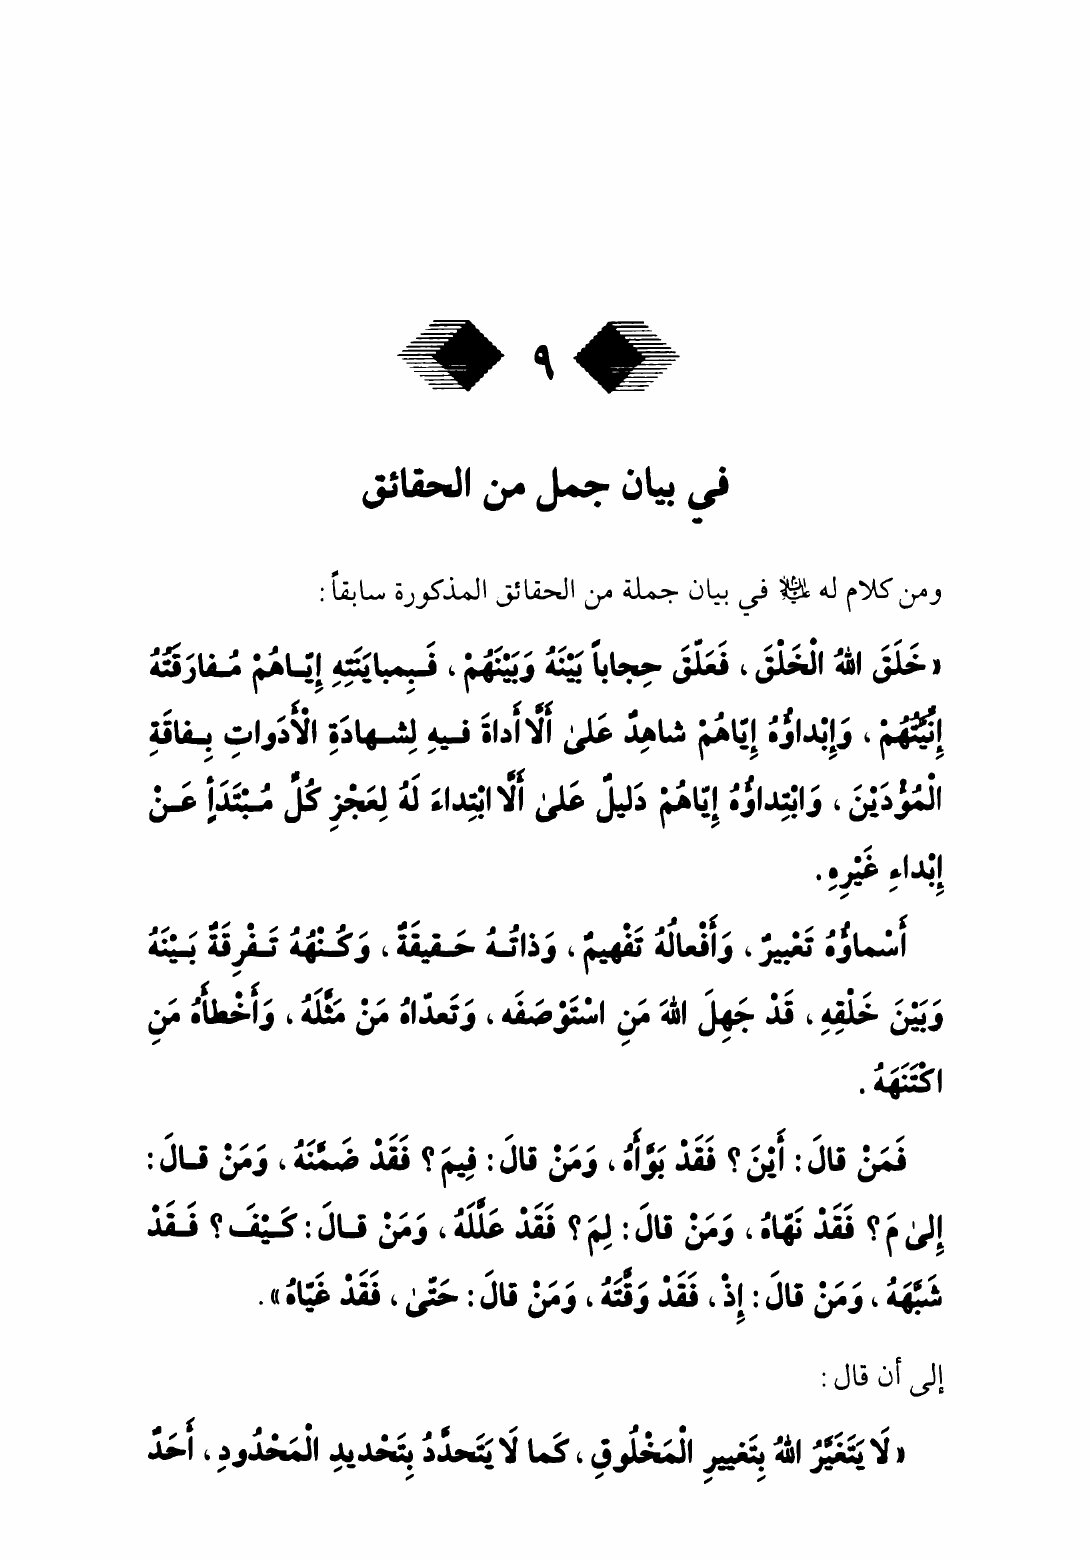 ٩
في بيان جمل من الحقائق
ومن كلام له عليه السلام في بيان جملة من الحقائق المذكورة سابقاً :
« خَلَقَ اللهُ الْخَلْقَ ، فَعَلَّقَ حِجاباً بَيْنَهُ وَبَيْنَهُمْ ، فَبِمبايَنَتِهِ إِيّاهُمْ مُفارَقَتُهُ
إِنِّيَّتَهُمْ ، وَإِبْداؤُهُ إِيّاهُمْ شاهِدٌ عَلىٰ أَلَّا أَداةَ فيهِ لِشهادَةِ الْأَدَواتِ بِفاقَةِ
الْمُؤَدَيْنَ ، وَابْتِداؤُهُ إِيّاهُمْ دَليلٌ عَلىٰ أَلَّا ابْتِداءَ لَهُ لِعَجْزِ كُلِّ مُبْتَدَأٍ عَنْ
إِبْداءِ غَيْرِهِ .
أَسْماؤُهُ تَعْبيرٌ ، وَأَفْعالُهُ تَفْهيمٌ ، وَذاتُهُ حَقيقَةٌ ، وَكُنْهُهُ تَفْرِقَةٌ بَيْنَهُ
وَبَيْنَ خَلْقِهِ ، قَدْ جَهِلَ اللهَ مَنِ اسْتَوْصَفَه ، وَتَعدّاهُ مَنْ مَثَّلَهُ ، وَأَخْطأَهُ مَنِ
اكْتَنَهَهُ .
فَمَنْ قالَ : أَيْنَ ؟ فَقَدْ بَوَّأَهُ ، وَمَنْ قالَ : فِيمَ ؟ فَقَدْ ضَمَّنَهُ ، وَمَنْ قالَ :
إِلىٰ مَ ؟ فَقَدْ نَهّاهُ ، وَمَنْ قالَ : لِمَ ؟ فَقَدْ عَلَّلَهُ ، وَمَنْ قالَ : كَيْفَ ؟ فَقَدْ
شَبَّهَهُ ، وَمَنْ قالَ : إِذْ ، فَقَدْ وَقَّتَهُ ، وَمَنْ قالَ : حَتّىٰ ، فَقَدْ غَيّاهُ » .
إلى أن قال :
« لَا يَتَغَيَّرُ اللهُ بِتَغييرِ الْمَخْلُوقِ ، كَما لَا يَتَحدَّدُ بِتَحْديدِ الْمَحْدُودِ ، أَحَدٌ